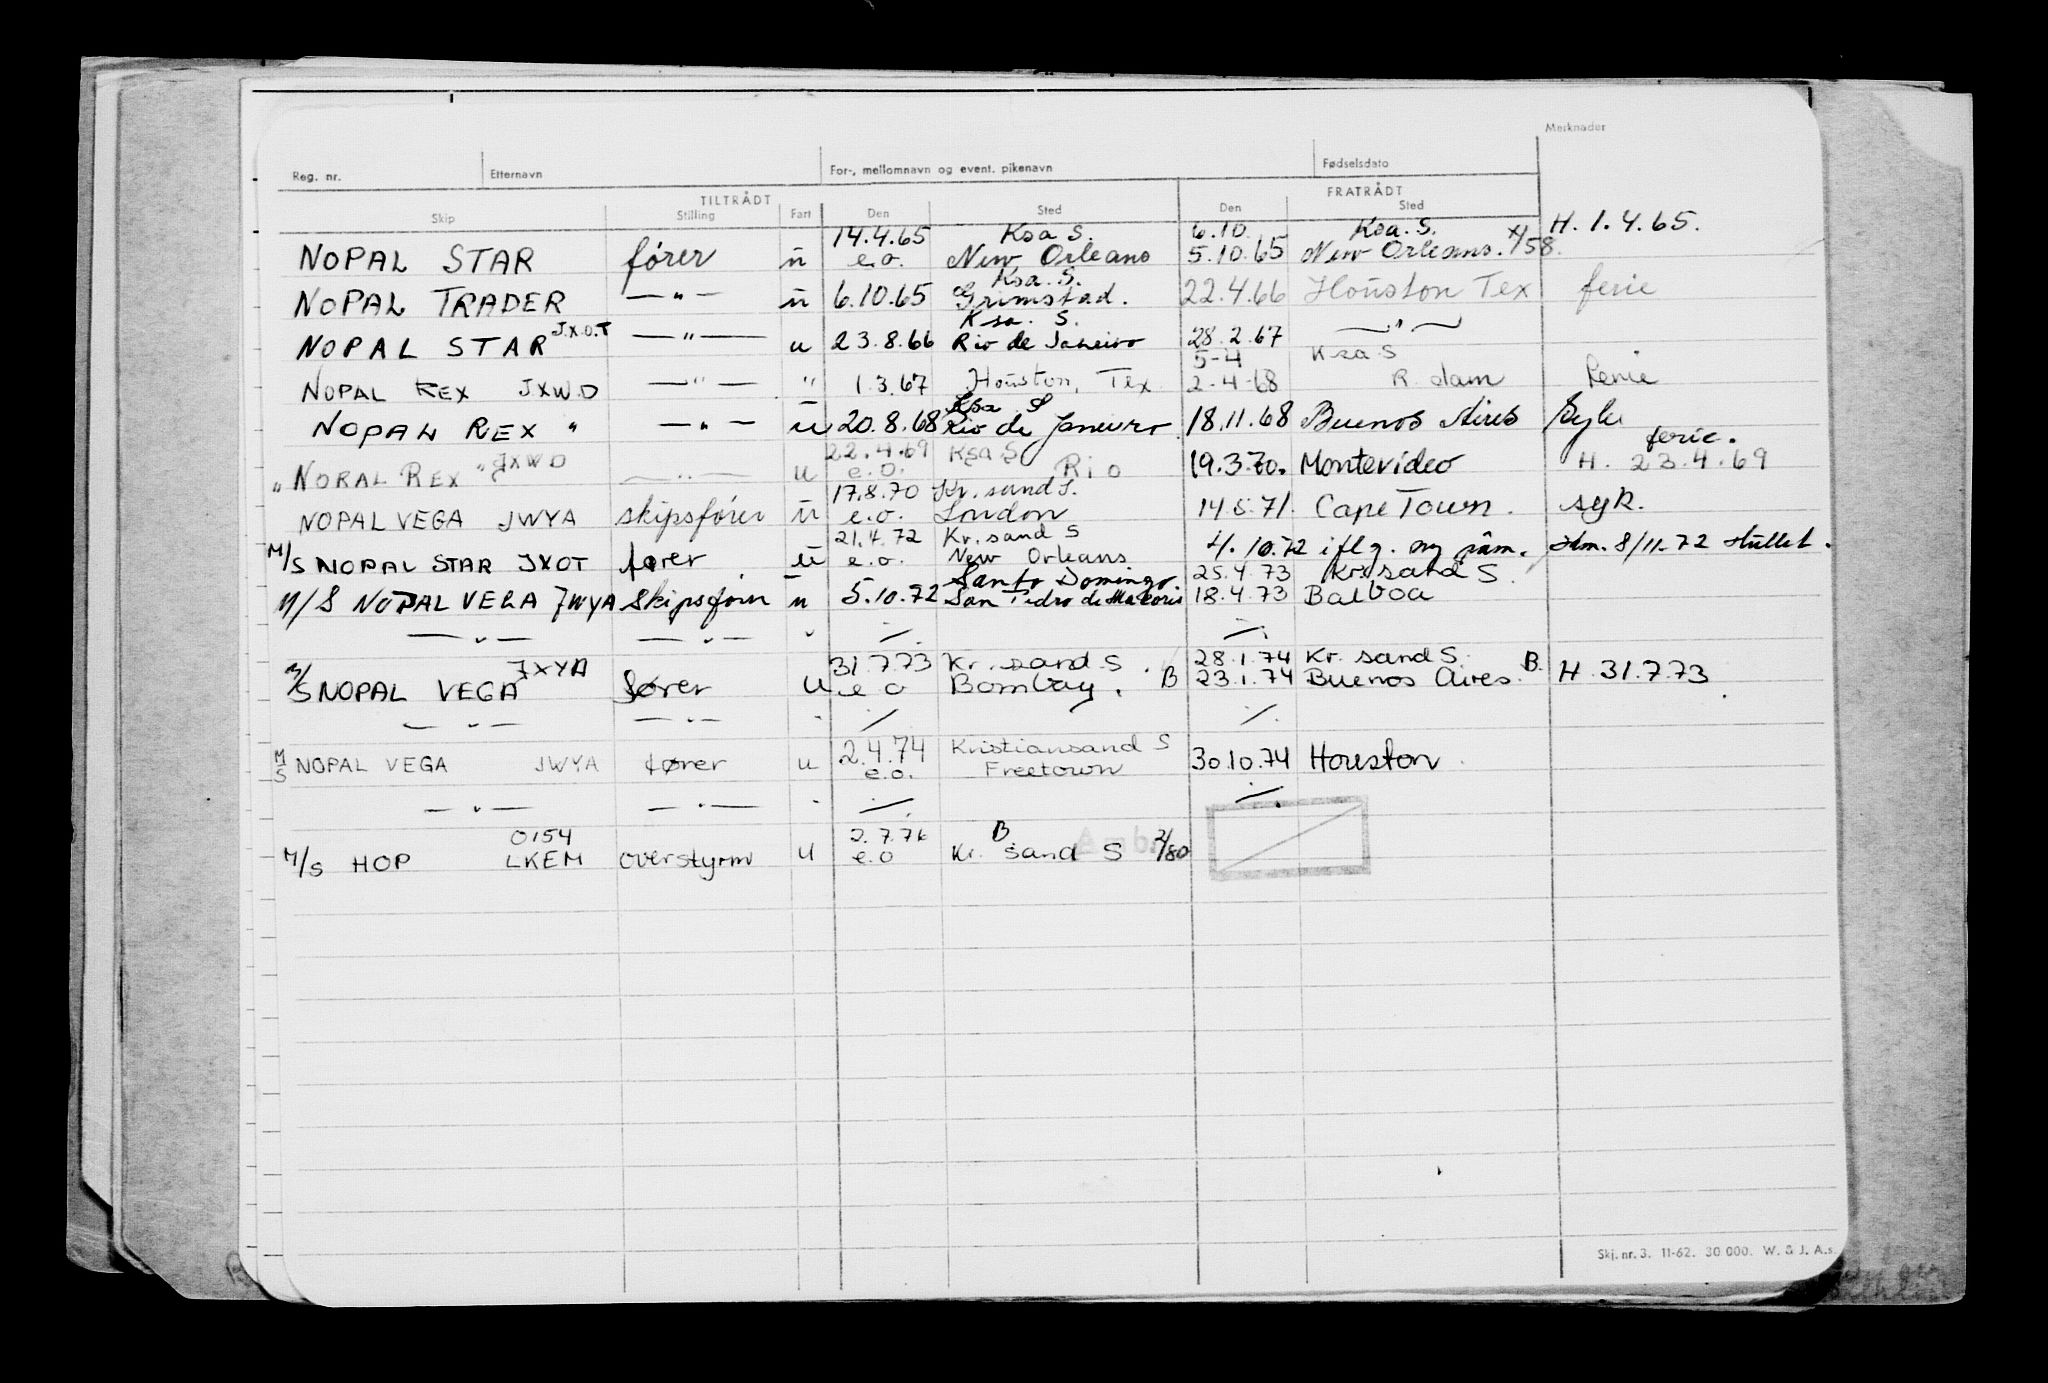 Merknader
Reg. nr. Etternavn For-, mellomnavn og event. pikenavn Fødselsdato
TILTRÅDT FRATRÅDT
Skip Stilling Fart Den Sted Den Sted
14.4.65 Ksa S. 6.10. Ksa. S. H. 1.4.65.
NOPAL STAR fører u e.o. New Orleans 5.10.65 New Orleans. x/58.
Ksa. S.
NOPAL TRADER — " — u 6.10.65 Grimstad. 22.4.66 Houston Tex ferie
Ksa. S.
NOPAL STAR J.X.O.T — " — u 23.8.66 Rio de Janeiro 28.2.67 — " —
5-4 Ksa S
NOPAL REX JXW.D — " — " 1.3.67 Houston, Tex 2-4-68 R. dam
Ksa S
NOPAL REX " — " — u 20.8.68 Rio de Janeiro 18.11.68 Buenos Aires
22.4.69 Ksa S ferie.
" NORAL REX " JXWD — " — u e.o. Rio 19.3.70. Montevideo H. 23.4.69
17.8.70 Kr. sand S.
NOPAL VEGA JWYA skipsfører u e.o. London 14.5.71. Cape Town. syk.
21.4.72 Kr. sand S
M/S NOPAL STAR JXOT fører u e.o. New Orleans 4.10.72 iflg. ny Hm. 8/11-72
Santo Domingo 25.4.73 Kr. sand S.
M/S NOPAL VEGA JWYA Skipsfører u 5.10.72 San Pedro de Macoris 18.4.73 Balboa
— " — — " — " ./. ./.
JXYA 31.7.73 Kr. sand S. 28.1.74 Kr. sand S. B.
M/S NOPAL VEGA fører u e o Bombay. B 23.1.74 Buenos Aires. H. 31.7.73
— " — — " — " ./. ./.
2.4.74 Kristiansand S
M/S NOPAL VEGA JWYA fører u e.o. Freetown 30.10.74 Houston.
— " — — " — " ./. ./.
0154 2.7.76 B
M/S HOP LKEM overstyrm u e.o Kr. sand S 2/80
Skj. nr. 3. 11-62. 30 000. W. & J. A.s.